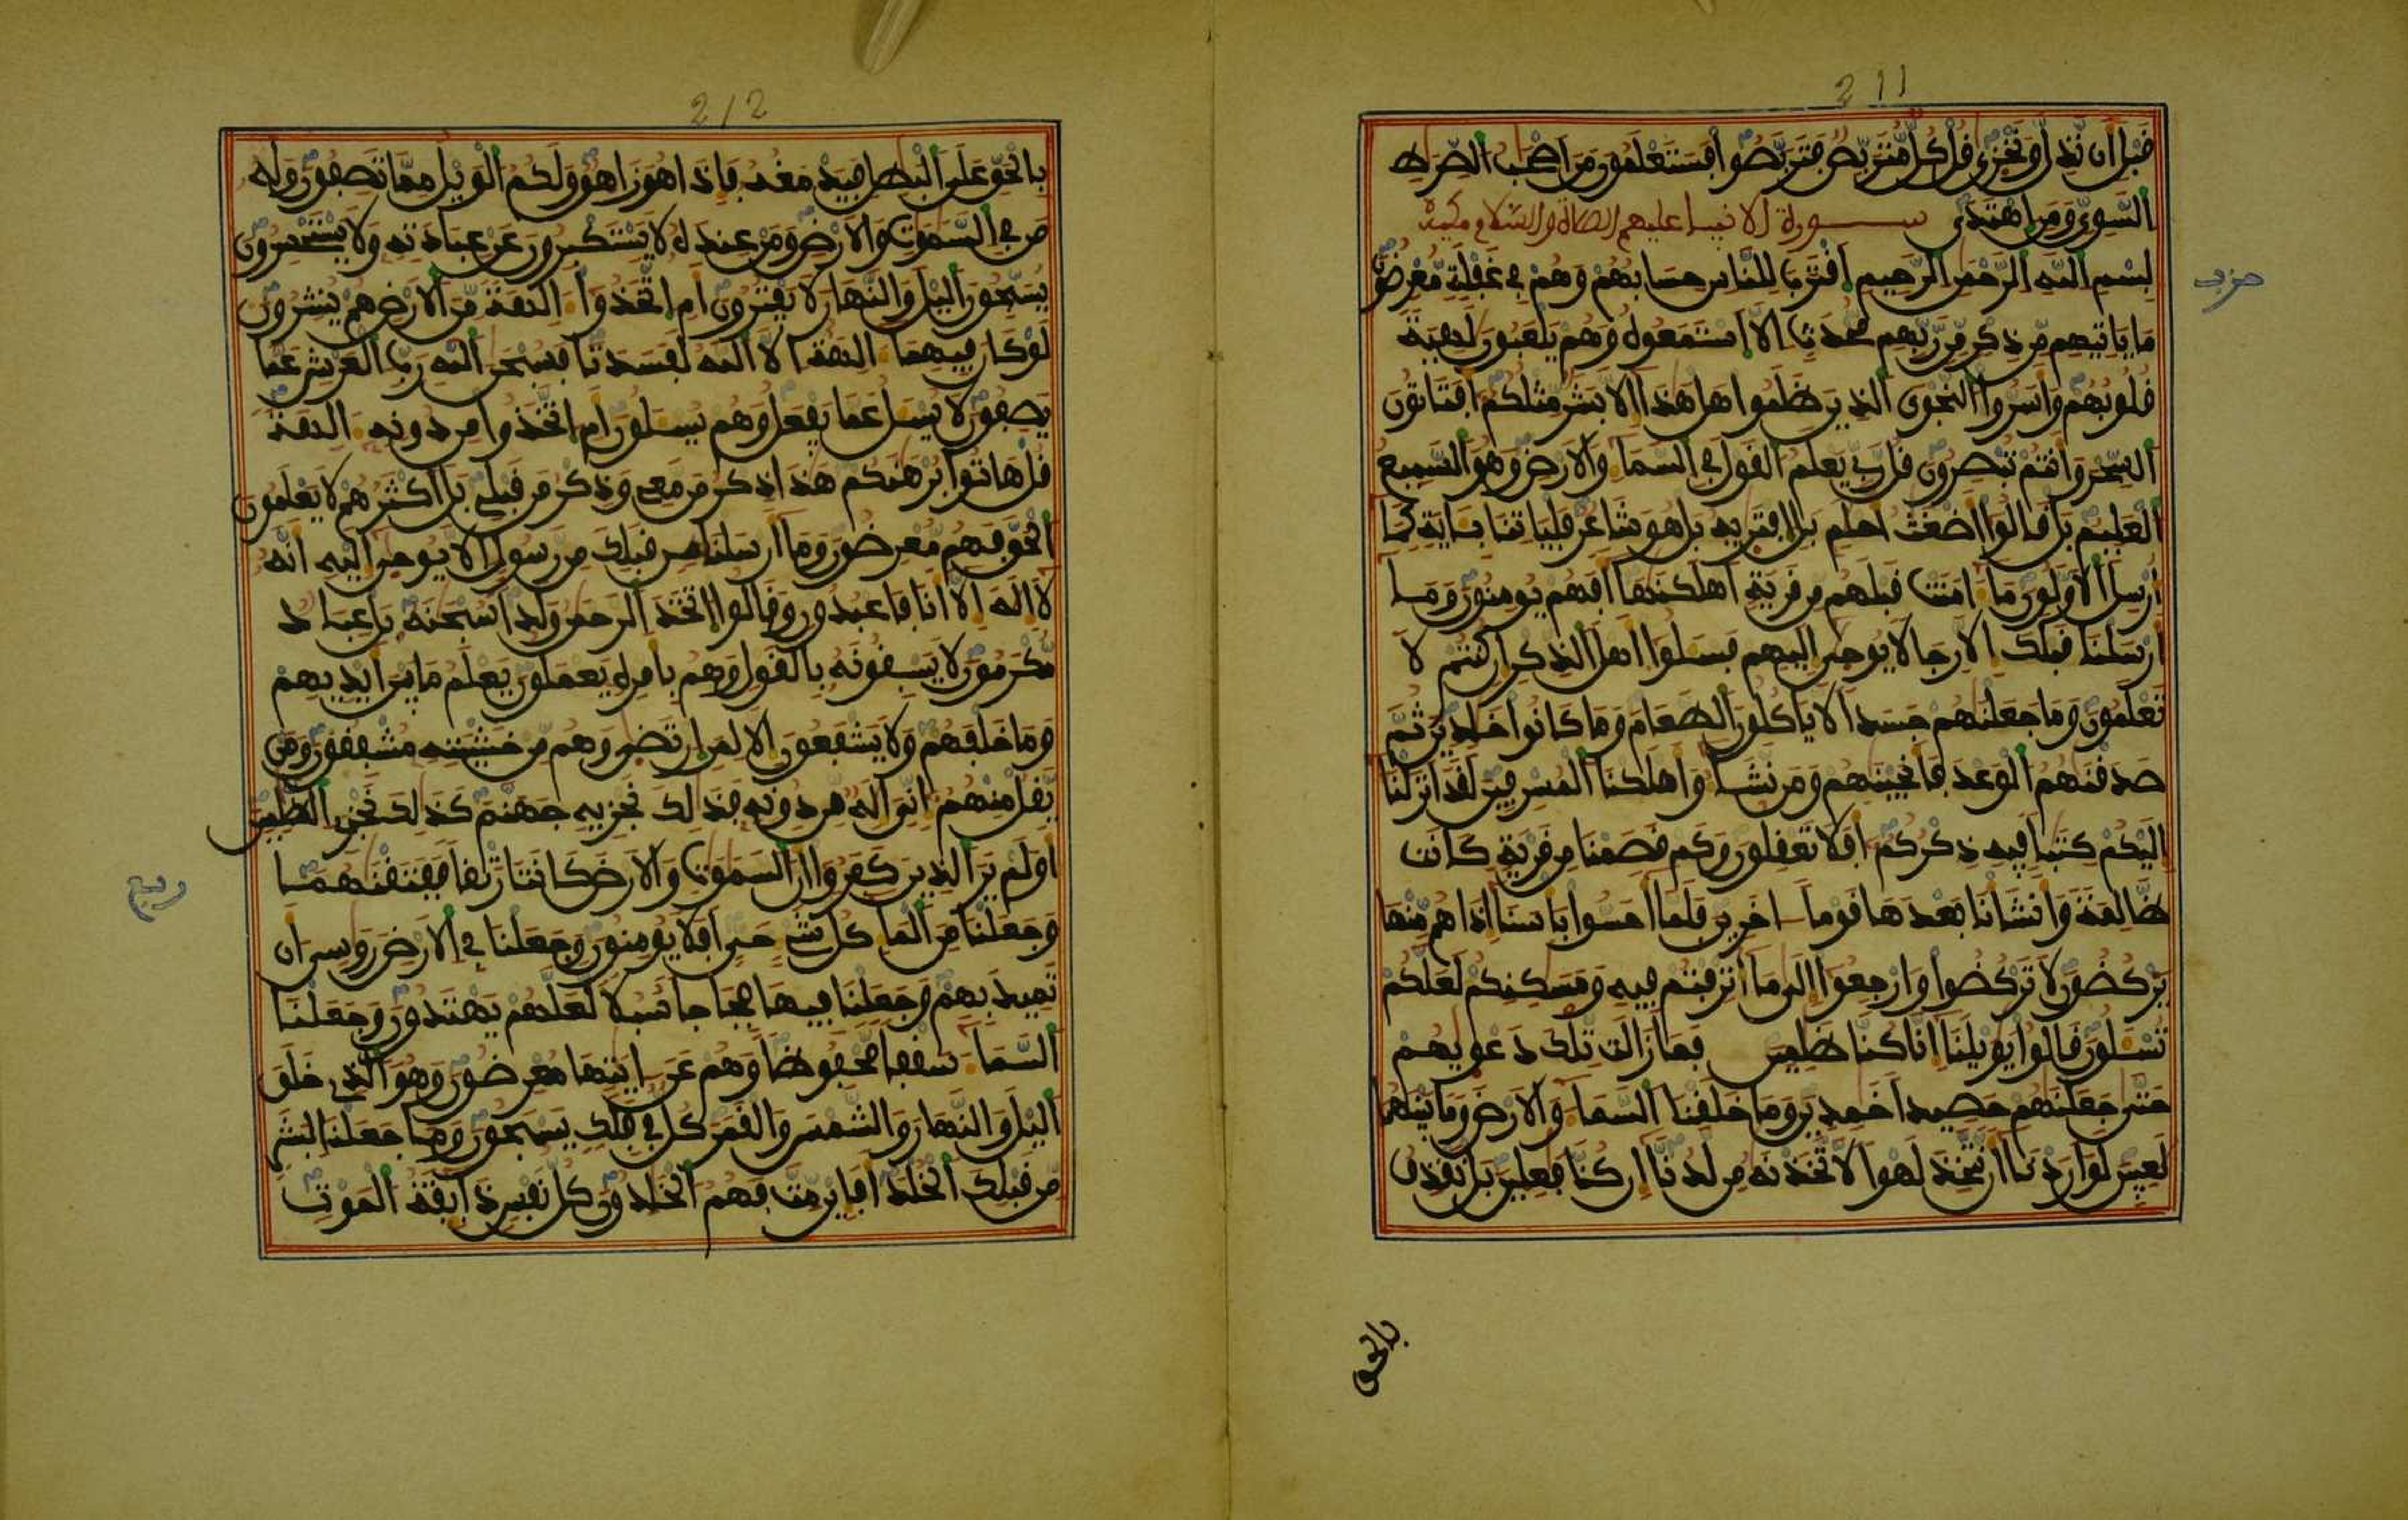 211
قبل ان نذل ونخزى قل كل متربص فتربصوا فستعلمون من اصحب الصرط
السوي ومن اهتدى سورة الانبيا عليهم الصلاة والسلام مكية
بسم الله الرحمن الرحيم اقترب للناس حسابهم وهم في غفلة معرضون
ما ياتيهم من ذكر من ربهم محدث الا استمعوه وهم يلعبون لهية
قلوبهم واسروا النجوى الذين ظلموا هل هذا الا بشر مثلكم افتاتون
السحر وانتم تبصرون قل ربي يعلم القول في السما والارض وهو السميع
العليم بل قالوا اضغث احلم بل افتريه بل هو شاعر فلياتنا بـاية كما
ارسل الاولون ما امنت قبلهم من قرية اهلكنها افهم يومنون وما
ارسلنا قبلك الا رجالا يوحى اليهم فسلوا اهل الذكر ان كنتم لا
تعلمون وما جعلنهم جسدا لا ياكلون الطعام وما كانوا خلدين ثم
صدقنهم الوعد فانجينهم ومن نشا واهلكنا المسرفين لقد انزلنا
اليكم كتبا فيه ذكركم افلا تعقلون وكم قصمنا من قرية كانت
ظالمة وانشانا بعدها قوما اخرين فلما احسوا باسنا اذا هم منها
يركضون لا تركضوا وارجعوا الى ما اترفتم فيه ومسكنكم لعلكم
تسلون قالوا يويلنا انا كنا ظلمين فما زالت تلك دعويهم
حتى جعلنهم حصيدا خمدين وما خلقنا السما والارض وما بينهما
لعبين لو اردنا ان نتخذ لهوا لاتخذنه من لدنا ان كنا فعلين بل نقذف
حزب
بالحق
212
بالحق على البطل فيدمغه فاذا هو زاهق ولكم الويل مما تصفون وله
من في السموت والارض ومن عنده لا يستكبرون عن عبادته ولا يستحسرون
يسبحون اليل والنهار لا يفترون ام اتخذوا الهة من الارض هم ينشرون
لو كان فيهما الهة الا الله لفسدتا فسبحن الله رب العرش عما
يصفون لا يسل عما يفعل وهم يسلون ام اتخذوا من دونه الهة
قل هاتوا برهنكم هذا ذكر من معي وذكر من قبلي بل اكثرهم لا يعلمون
الحق فهم معرضون وما ارسلنا من قبلك من رسول الا يوحى اليه انه
لا اله الا انا فاعبدون وقالوا اتخذ الرحمن ولدا سبحنه بل عباد
مكرمون لا يسبقونه بالقول وهم بامره يعملون يعلم ما بين ايديهم
وما خلفهم ولا يشفعون الا لمن ارتضى وهم من خشيته مشفقون ومن
يقل منهم اني اله من دونه فذلك نجزيه جهنم كذلك نجزي الظلمين
اولم ير الذين كفروا ان السموت والارض كانتا رتقا ففتقنهما
وجعلنا من الما كل شي حي افلا يومنون وجعلنا في الارض روسي ان
تميد بهم وجعلنا فيها فجاجا سبلا لعلهم يهتدون وجعلنا
السما سقفا محفوظا وهم عن ايتها معرضون وهو الذي خلق
اليل والنهار والشمس والقمر كل في فلك يسبحون وما جعلنا لبشر
من قبلك الخلد افاين مت فهم الخلدون كل نفس ذايقة الموت
ربع